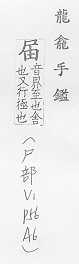 龍龕手鑑
届音界至也舍
也又行極也
(尸部V1
P56
A6)